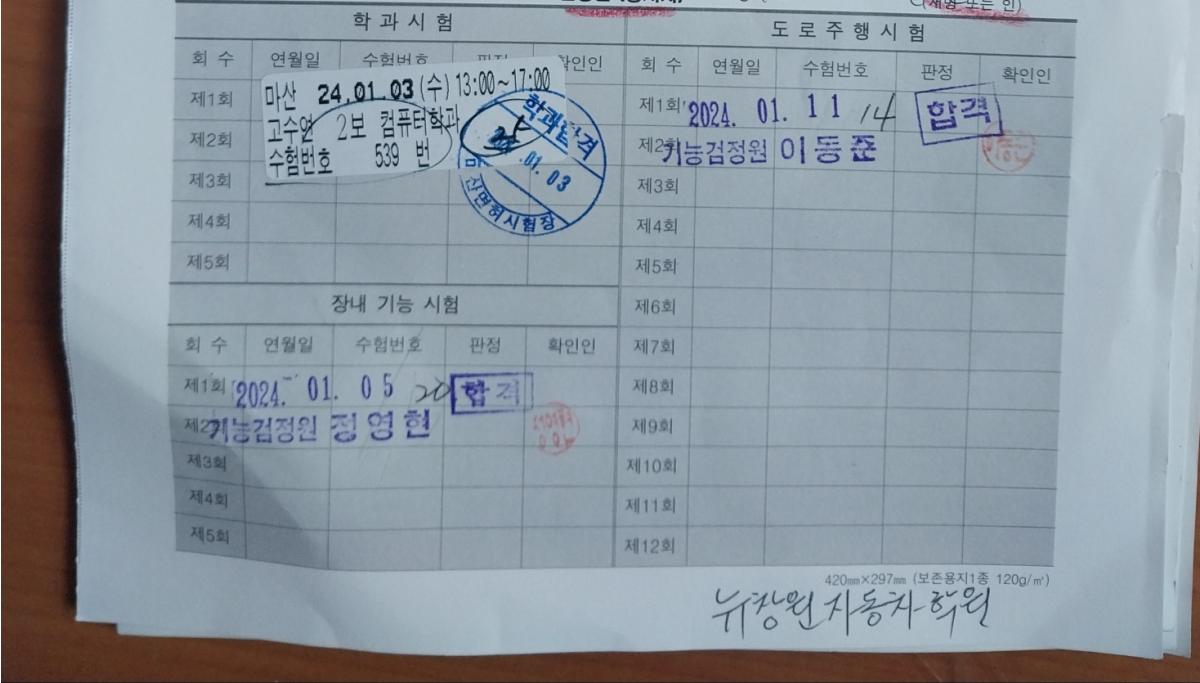 학과시험
회 수 연월일 수험번호 판정 확인인
제1회
제2회
제3회
제4회
제5회
마산 24.01.03 (수) 13:00~17:00
고수연 2보 컴퓨터학과
수험번호 539 번
학과합격
.01.03
마산면허시험장
장내 기능 시험
회 수 연월일 수험번호 판정 확인인
제1회 2024. 01. 05 20 합격
제2회 기능검정원 정영현
제3회
제4회
제5회
도로주행시험
회 수 연월일 수험번호 판정 확인인
제1회 2024. 01. 11 14 합격
제2회 기능검정원 이동준
제3회
제4회
제5회
제6회
제7회
제8회
제9회
제10회
제11회
제12회
420㎜×297㎜ (보존용지1종 120g/㎡)
뉴창원자동차학원